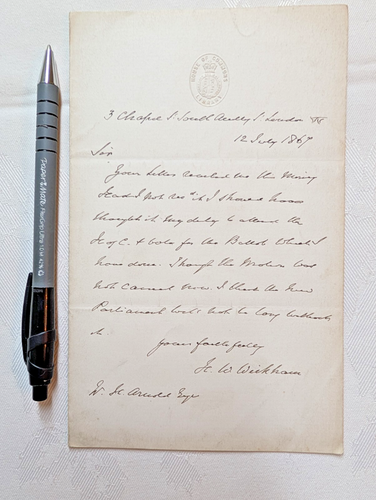 HOUSE OF COMMONS
LIBRARY
3 Chapel St South Audley St London W
12 July 1867
Sir
Your letter reached me this morning
Had I not recd it I should have
thought it my duty to attend the
H of C & vote for the Ballot Which I
have done. Though the Motion was
not carried now, I think the New
Parliament will not be long without
it.
Yours faithfully
H. W. Wickham
W. H. Arnold Esqr
PAPER MATE